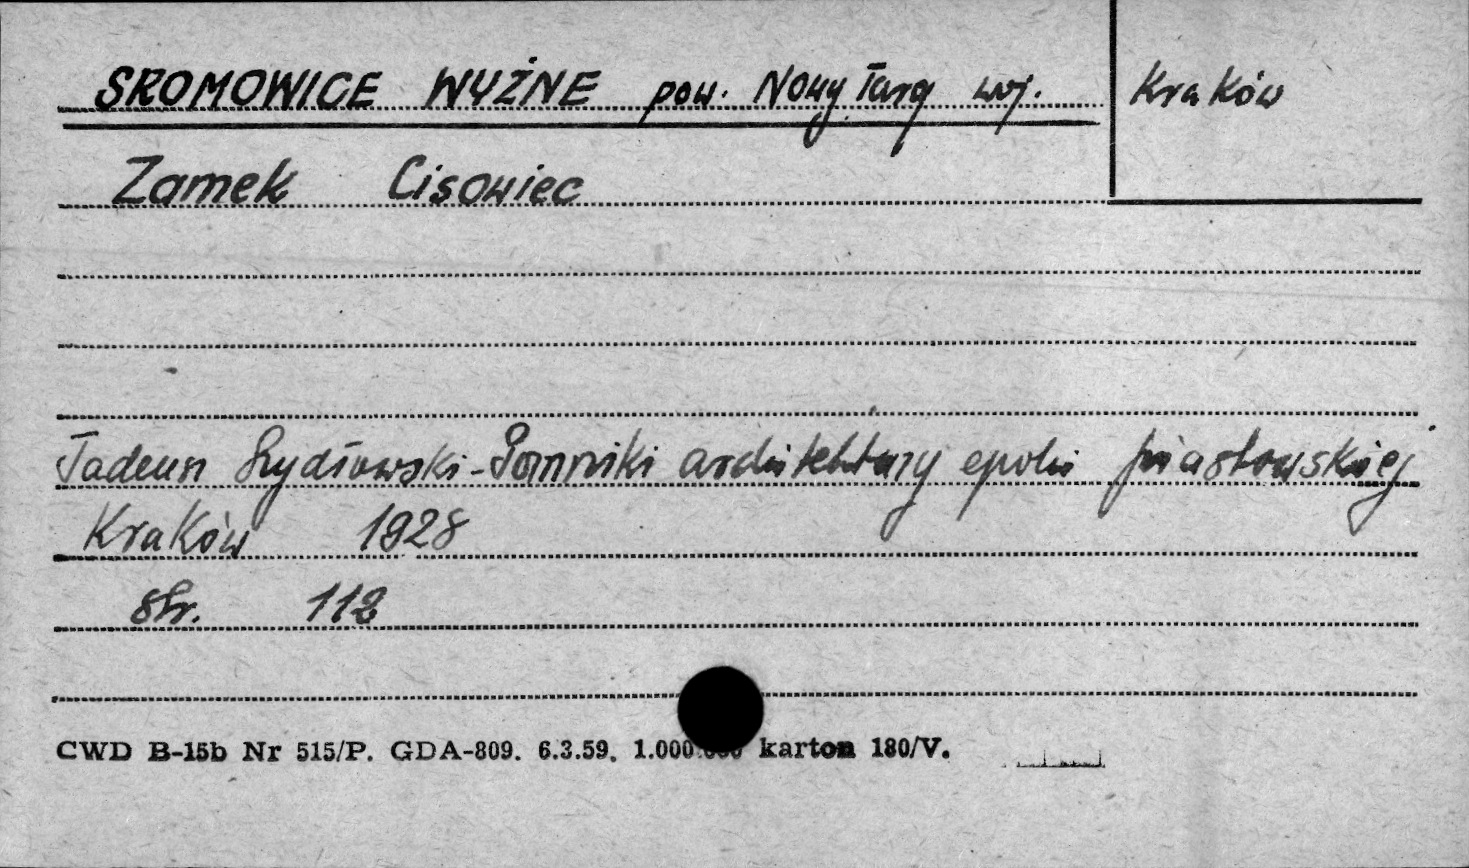 SROMOWICE WYŻNE pow. Nowy Targ woj. Kraków
Zamek Cisowiec
Tadeusz Szydłowski - Pomniki architektury epoki piastowskiej
Kraków 1928
str. 112
CWD B-15b Nr 515/P. GDA-809. 6.3.59. 1.000.000 karton 180/V.